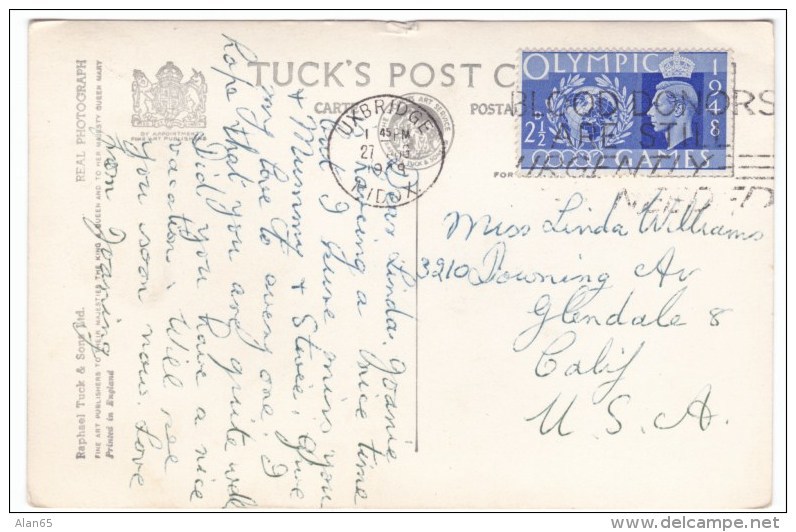 TUCK'S POST
REAL PHOTOGRAPH
BY APPOINTMENT
Raphael Tuck & Sons Ltd.
FINE ART PUBLISHERS TO THEIR MAJESTIES THE KING & QUEEN AND TO HER MAJESTY QUEEN MARY
Printed in England
UXBRIDGE
1 45 PM
27
OLYMPIC
1948
GAMES
2½
BLOOD DONORS
ARE STILL
URGENTLY
NEEDED
Dear Linda, Joanie
is having a nice time
but I have miss you
+ Mummy + Stevee, give
my love to every one. I
hope that you are quite well
Did you have a nice
vacation, Will see
you soon now. Love
from
Miss Linda Williams
3210 Downing Av
Glendale 8
Calif
U.S.A.
Alan65
http://www.delcampe.net